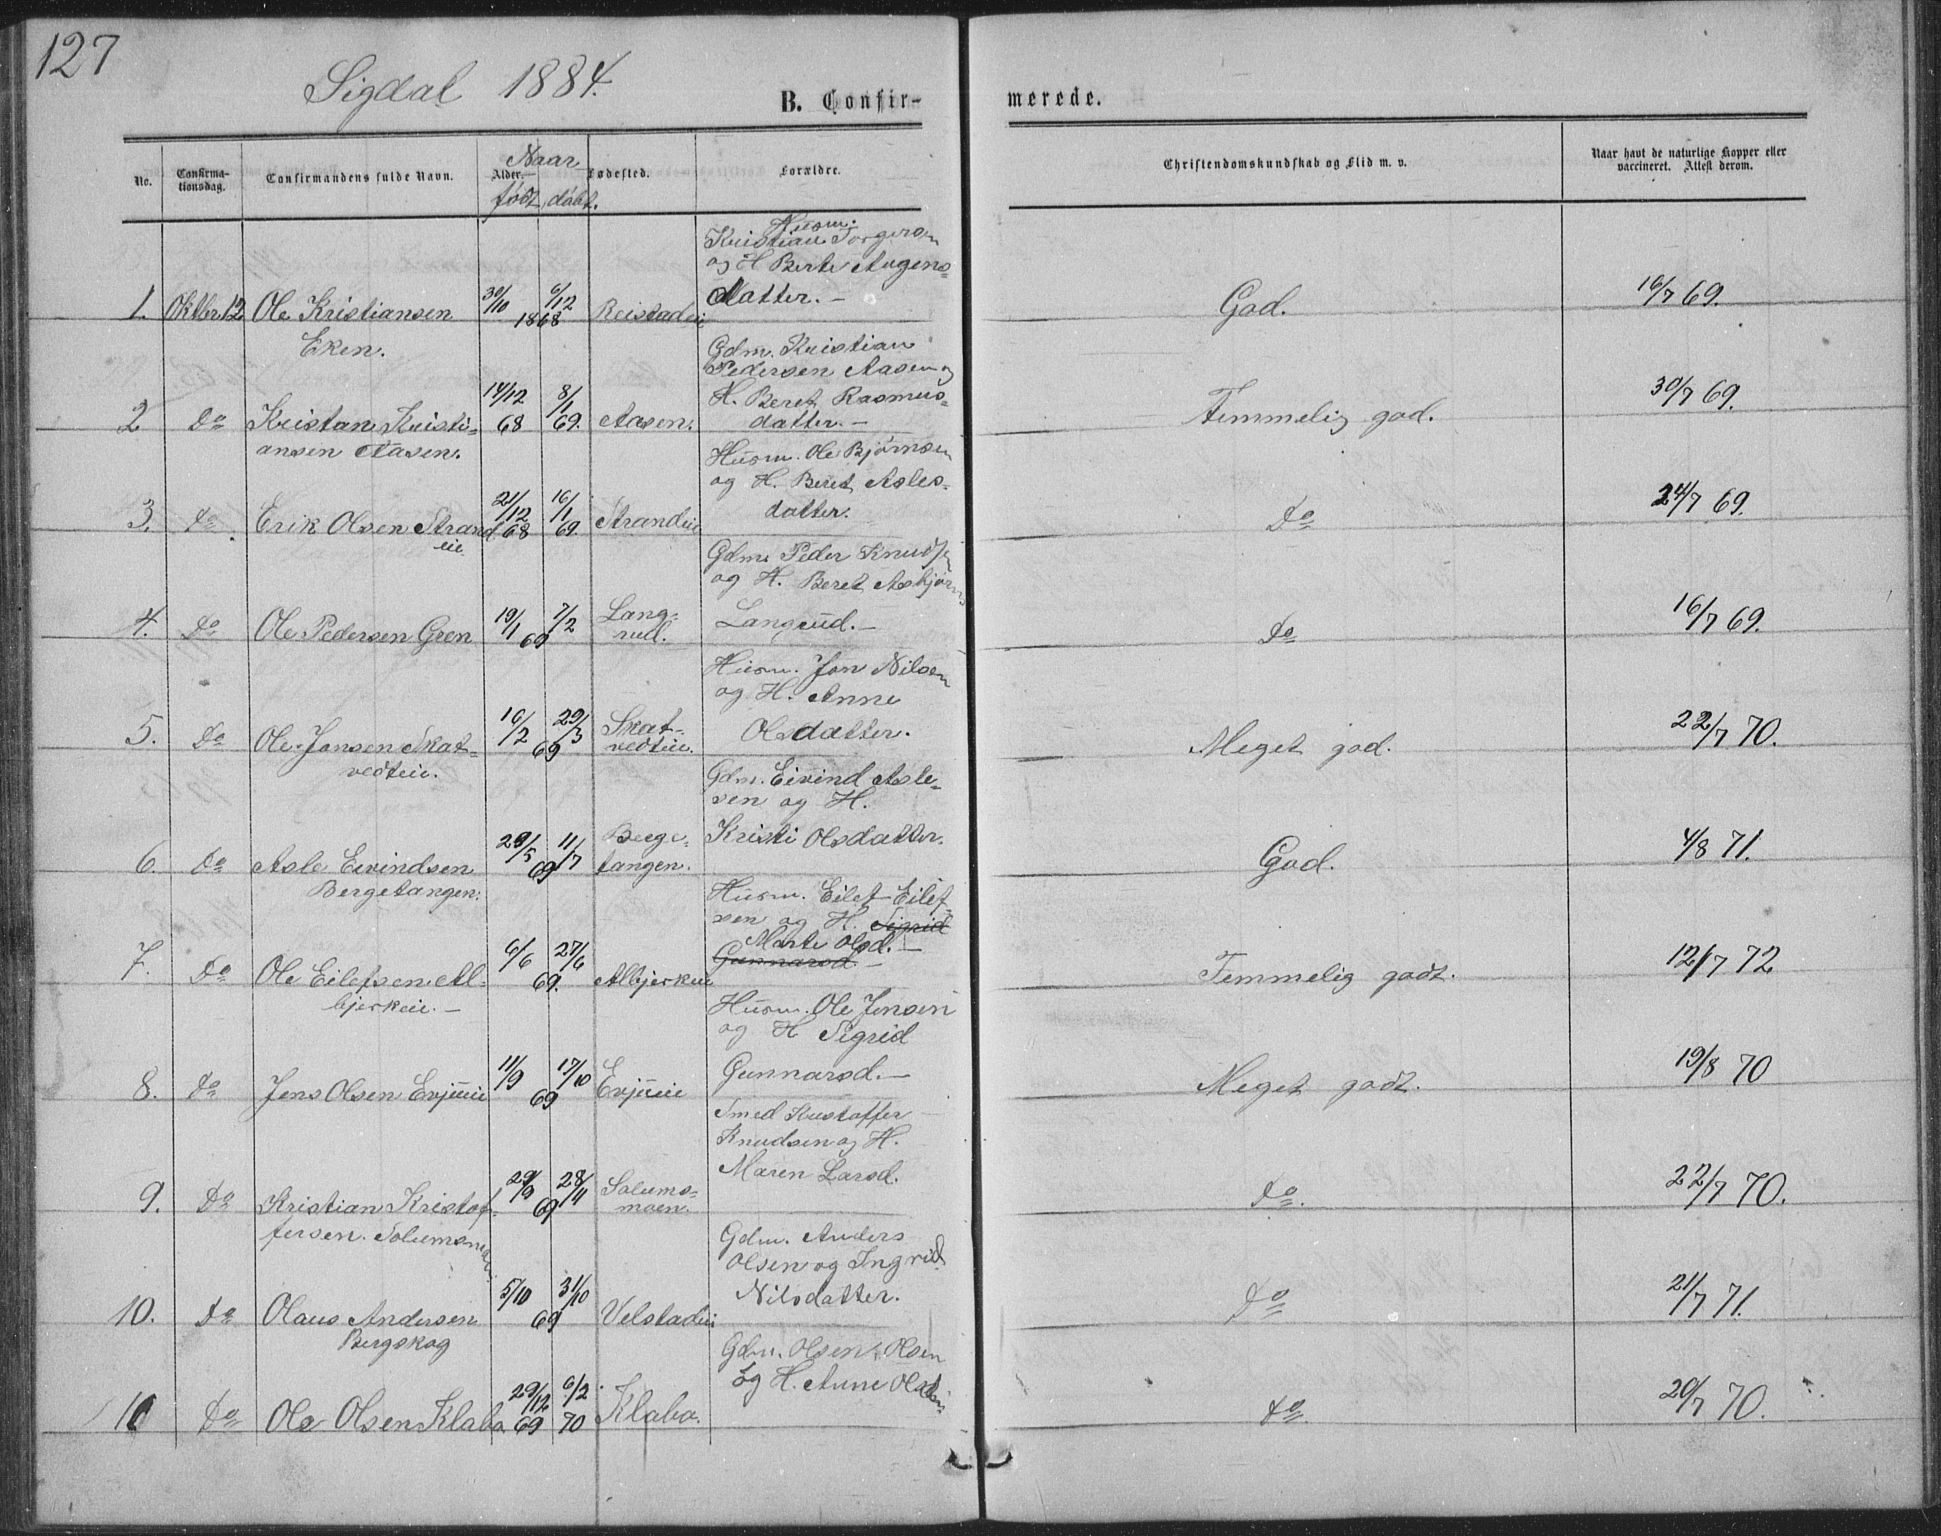 127
Sigdal 1884.
B. Confir-
merede.
No.
Confirma-
tionsdag.
Confirmandens fulde Navn.
Naar
Alder.
født, døbt.
Fødested.
Forældre.
Christendomskundskab og Flid m. v.
Naar havt de naturlige Kopper eller
vaccineret. Attest derom.
Husm.
Kristian Torgersen
og H Berte Augens-
datter.-
1. Oktbr 12 Ole Kristiansen 30/10 6/12 Reistadeie God. 16/7 69.
1868
Eken.
Gdm. Kristian
Pedersen Aasen og
H. Beret Rasmus-
datter.-
2 Do Kristian Kristi- 14/12 8/1 Aasen. Temmelig god. 30/7 69.
68 69.
ansen Aasen.
Husm. Ole Bjørnsen
og H. Beret Asles-
datter.
3. Do Erik Olsen Strand 21/12 16/1 Strandeie Do 24/7 69.
eie 68 69.
Gdm. Peder Knudsen
og H. Beret Asbjørns
Langrud.-
4. Do Ole Pedersen Gren 19/1 7/2 Lang- Do 16/7 69.
69 rud.
Husm. Jon Nilsen
og H. Anne
Olsdatter.
5. Do Ole Jonsen Skat- 16/2 29/3 Skat- Meget god. 22/7 70.
vedteie. 69 vedteie.
Gdm. Eivind Asle-
sen og H.
Kristi Olsdatter.
6. Do Asle Eivindsen 29/5 11/7 Berge- God. 4/8 71.
Bergetangen. 69 tangen.
Husm. Eilef Eilef-
sen og H. Sigrid
Marte Olsd.-
Gunnarsd.-
7. Do Ole Eilefsen Al- 6/6 27/6 Albjerkeie Temmelig godt. 12/7 72
bjerkeie.- 69.
Husm. Ole Jensen
og H Sigrid
Gunnarsd.-
8. Do Jens Olsen Evjueie 11/9 17/10 Evjueie Meget godt. 19/8 70
69
Smed Kristoffer
Knudsen og H.
Maren Larsd.
9. Do Kristian Kristof- 29/9 28/11 Solums- Do. 22/7 70.
fersen Solumsmoen. 69 moen.
Gdm. Anders
Olsen og Ingrid
Nilsdatter.
10. Do Olaus Andersen 5/10 31/10 Velstadeie Do 21/7 71.
Bergskog 69
Gdm. Olsen Olsen
og H. Anne
11 Do Ole Olsen Klabo 29/12 6/2 Klabo. Do 20/7 70.
69 70